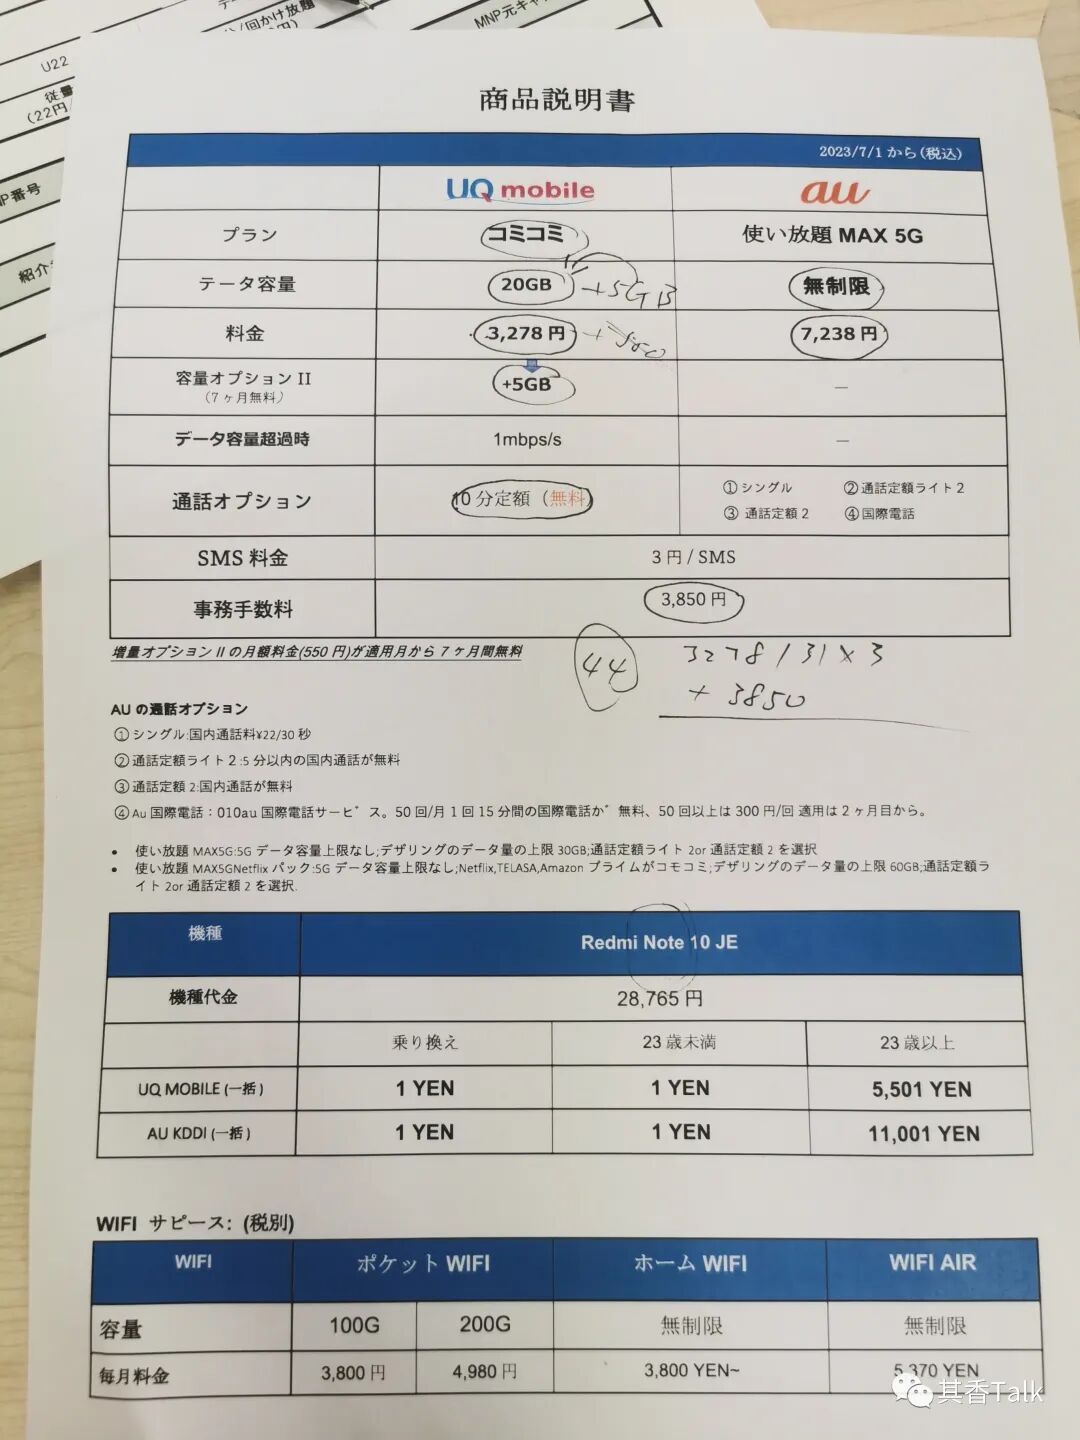 U22
従量
(22円/
/回かけ放題
MNP元キャ
P番号
紹介
商品説明書
2023/7/1 から(税込)
UQ mobile au
プラン コミコミ 使い放題 MAX 5G
テータ容量 20GB +5GB 無制限
料金 3,278 円 + 550 7,238 円
容量オプション II +5GB —
(7 ヶ月無料)
データ容量超過時 1mbps/s —
通話オプション 10 分定額(無料) ① シングル ② 通話定額ライト 2
③ 通話定額 2 ④ 国際電話
SMS 料金 3 円 / SMS
事務手数料 3,850 円
増量オプション II の月額料金(550 円)が適用月から 7 ヶ月間無料
44 3278 / 31 x 3
+ 3850
AU の通話オプション
① シングル:国内通話料¥22/30 秒
② 通話定額ライト 2:5 分以内の国内通話が無料
③ 通話定額 2:国内通話が無料
④ Au 国際電話：010au 国際電話サービス。50 回/月 1 回 15 分間の国際電話が無料、50 回以上は 300 円/回 適用は 2 ヶ月目から。
• 使い放題 MAX5G:5G データ容量上限なし;デザリングのデータ量の上限 30GB;通話定額ライト 2or 通話定額 2 を選択
• 使い放題 MAX5GNetflix パック:5G データ容量上限なし;Netflix,TELASA,Amazon プライムがコモコミ;デザリングのデータ量の上限 60GB;通話定額ラ
イト 2or 通話定額 2 を選択.
機種 Redmi Note 10 JE
機種代金 28,765 円
乗り換え 23 歳未満 23 歳以上
UQ MOBILE (一括) 1 YEN 1 YEN 5,501 YEN
AU KDDI (一括) 1 YEN 1 YEN 11,001 YEN
WIFI サピース: (税別)
WIFI ポケット WIFI ホーム WIFI WIFI AIR
容量 100G 200G 無制限 無制限
毎月料金 3,800 円 4,980 円 3,800 YEN~ 5,370 YEN
其香Talk